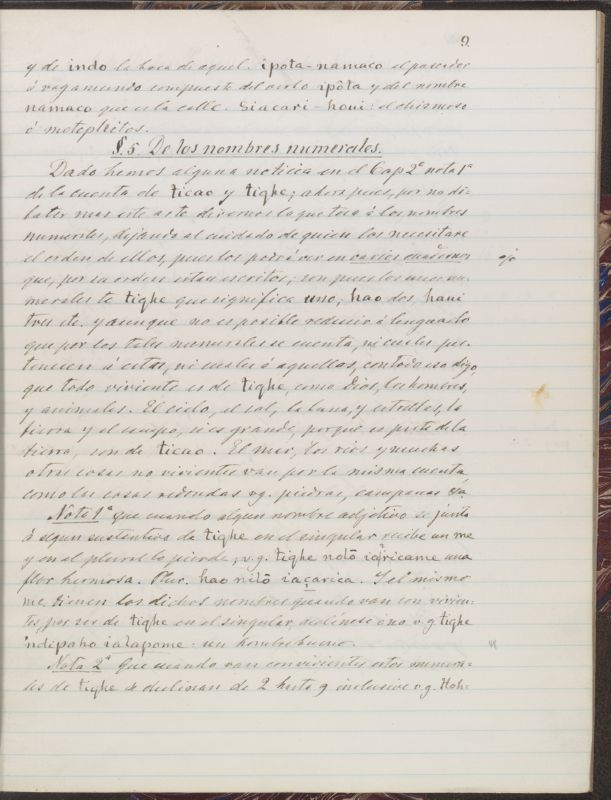 9.
y de indo la boca de aquel. ipota-namaco el paseador
ó vagamundo compuesto del verbo ipôta y del nombre
namaco que es la calle. Siacari-houi: el chismoso
ó meteplêitos.
§. 5. De los nombres numerales.
Dado hemos alguna noticia en el Cap 2º nota 1ª
de la cuenta de ticao y tighe; aora pues, por no di-
latar mas este arte, diremos lo que toca á los nombres
numerales, dejando al cuidado de quien los necesitare
el orden de ellos, pues los podrá ver en varios cuadernos
ojo
que, por su orden estan escritos; son pues los unos nu-
merales te tighe que significa uno, hao dos, hani
tres etc. y aunque no es posible reducir á lengua lo
que por los tales numerales se cuenta, ni cuales per-
tenecen á estos, ni cuales á aquellos, con todo eso digo,
que todo viviente es de tighe, como Dios, los hombres,
y animales. El cielo, el sol, la luna, y estrellas, la
tierra y el campo, si es grande, porque es parte de la
tierra, son de ticao. El mar, los rios y muchas
otras cosas no vivientes van por la misma cuenta
como las cosas redondas vg. piedras, campanas
Nota 1ª Que cuando algun nombre adjetivo se junta
á algun sustantivo de tighe en el singular recibe un me
y en el plural lo pierde, v.g. tighe notō iaçricame una
flor hermosa. Plur. hao nitō iaçarica. Y el mismo
me tienen los dichos nombres quando van con vivien-
tes, por ser de tighe en el singular, declinese ó no v.g tighe
ndipaho ialapome: un hombre bueno.
Nota 2ª Que cuando van con vivientes estos numera-
les de tighe se declinan de 2 hasta 9 inclusive v.g. Hoh-